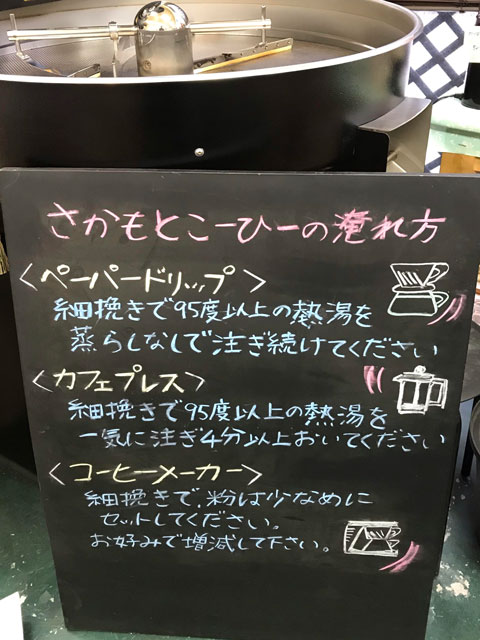 さかもとこーひーの淹れ方
<ペーパードリップ>
細挽きで95度以上の熱湯を
蒸らしなしで注ぎ続けてください
<カフェプレス>
細挽きで95度以上の熱湯を
一気に注ぎ4分以上おいてください
<コーヒーメーカー>
細挽きで、粉は少なめに
セットしてください。
お好みで増減して下さい。